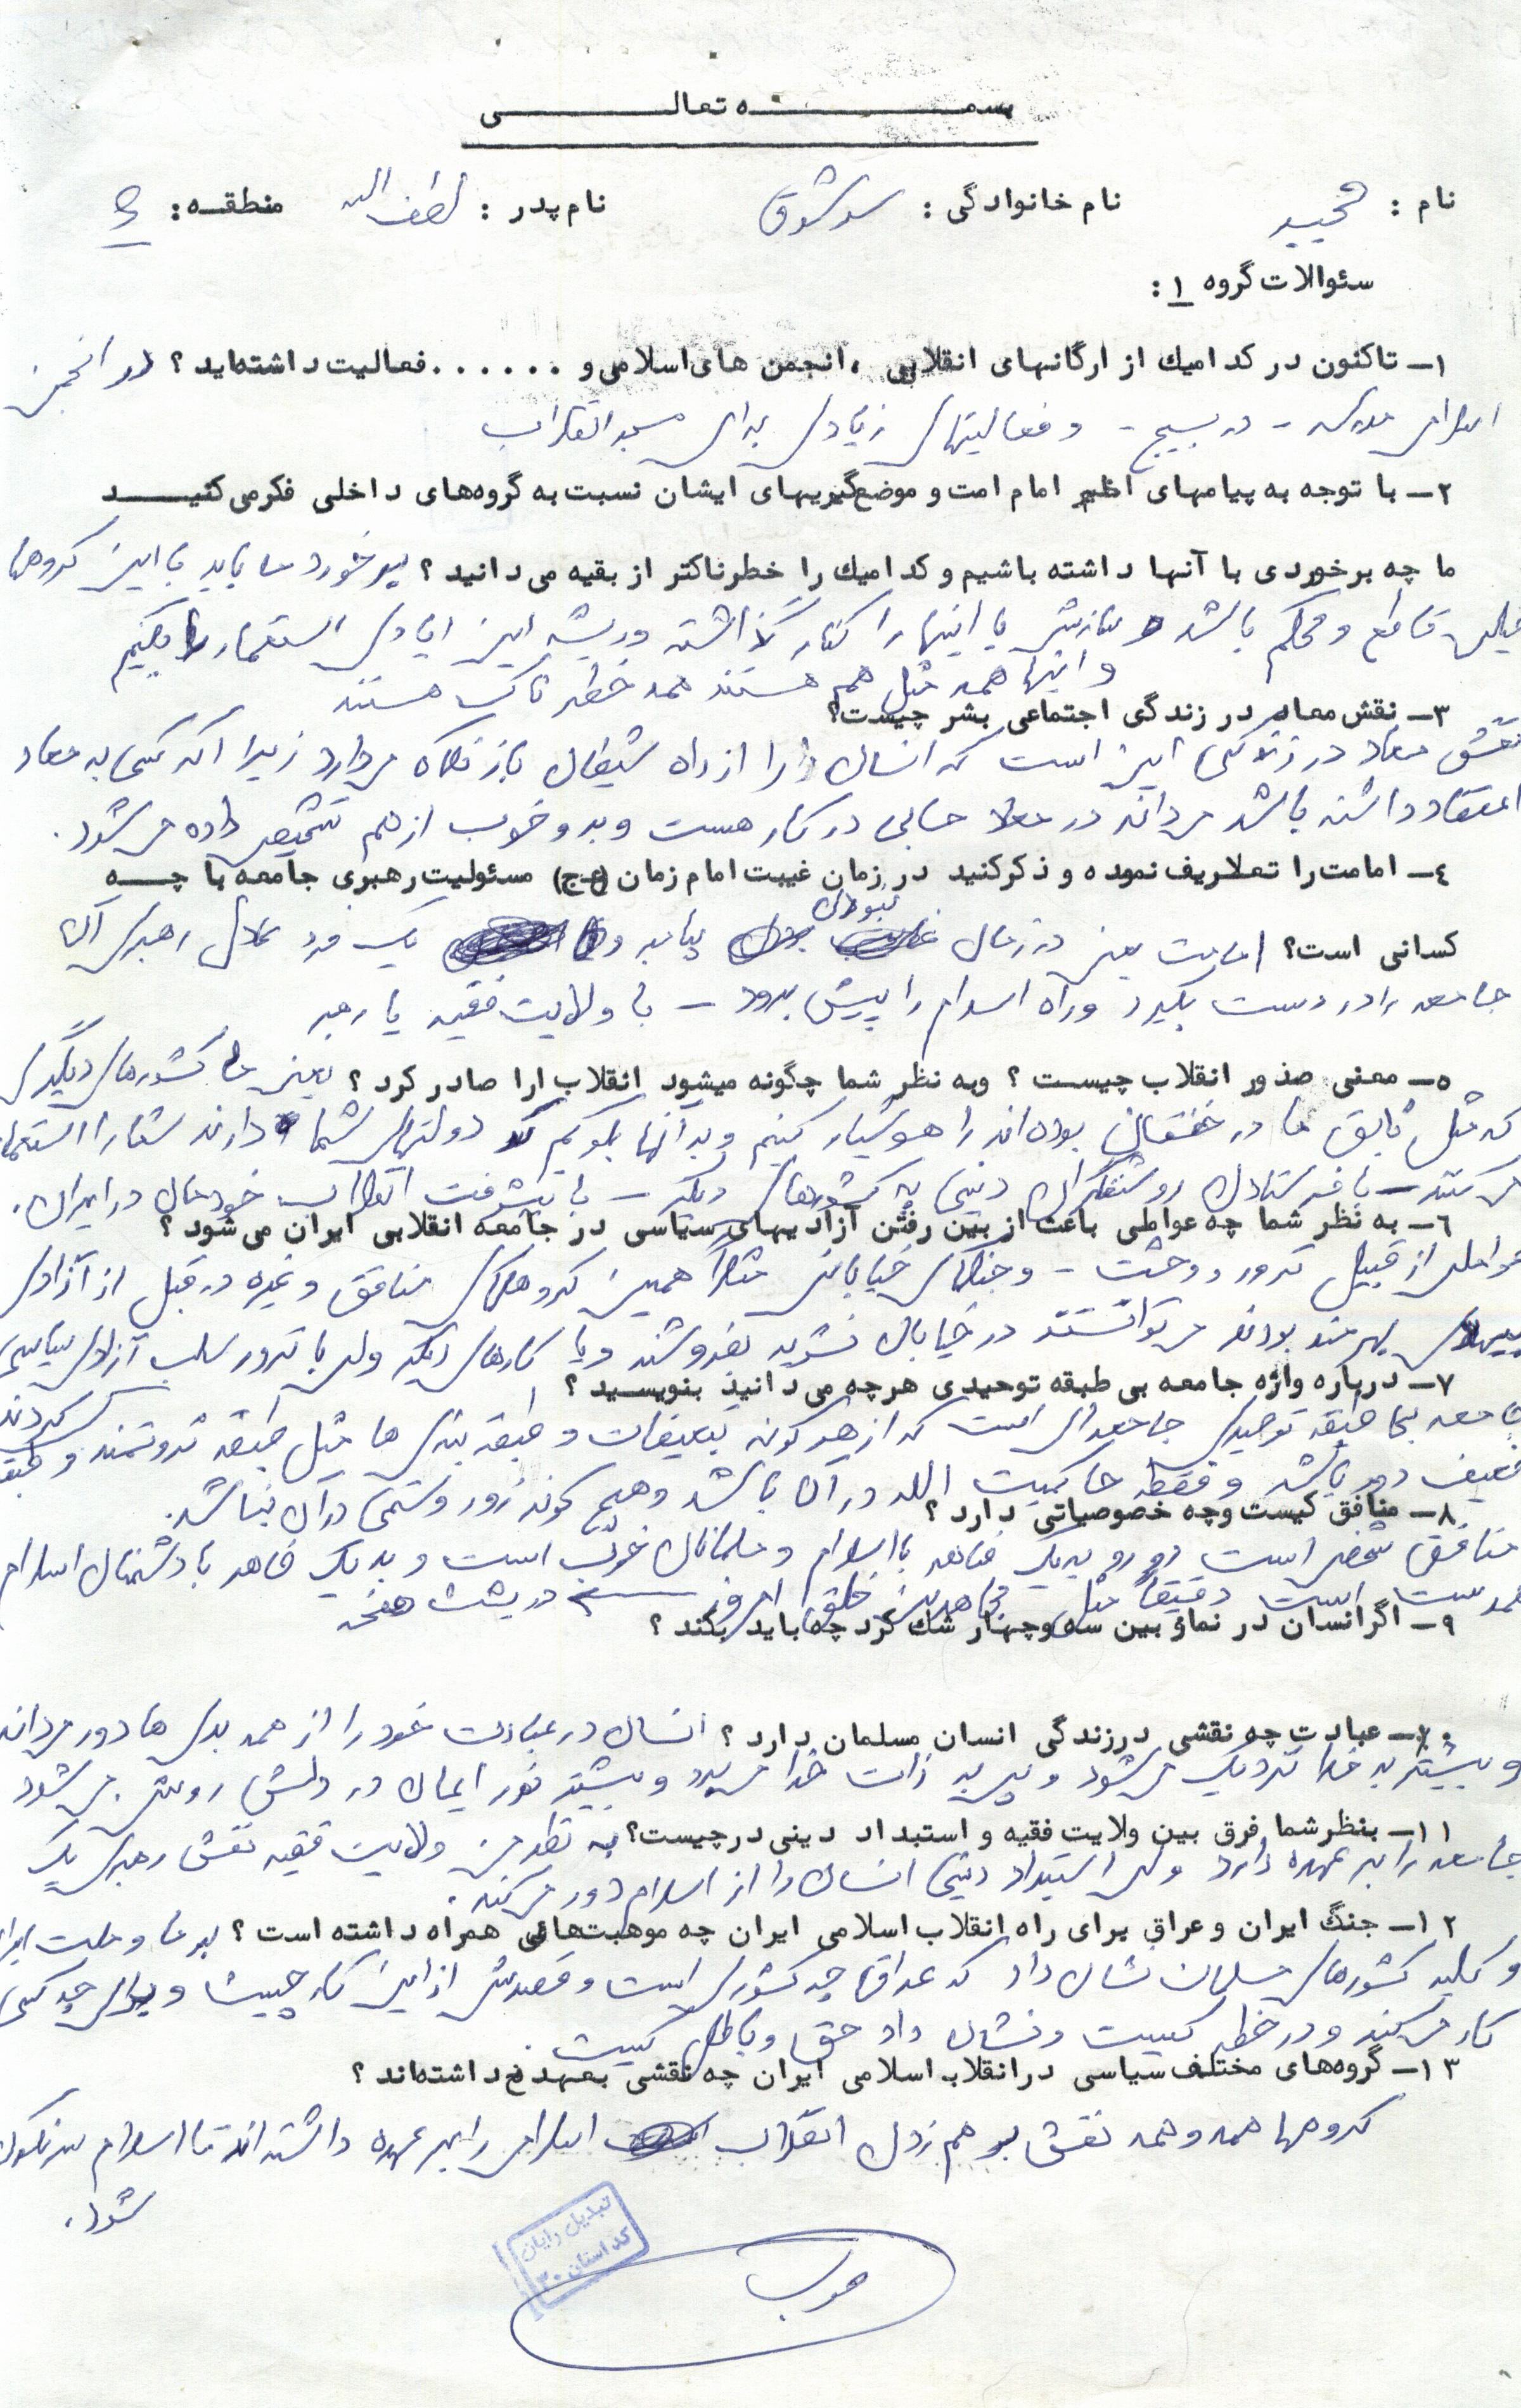 بسمه تعالی
نام : مجید نام خانوادگی : نام پدر : لطف الله منطقه : 5
سئوالات گروه ۱ :
۱- تاکنون در کدامیك از ارگانهای انقلابی ، انجمن های اسلامی و ...... فعالیت داشته‌اید ؟ در انجمن
اسلامی مدرسه - در بسیج - و فعالیتهای زیادی برای مسجد انقلاب
۲- با توجه به پیامهای اخیر امام امت و موضع‌گیریهای ایشان نسبت به گروه‌های داخلی فکر می کنید
ما چه برخوردی با آنها داشته باشیم و کدامیك را خطرناکتر از بقیه می دانید ؟ برخورد ما باید با این گروهها
خیلی قاطع و محکم باشد و سازش با اینها را کنار گذاشته و ریشه این ایادی استعمار را بکنیم
و اینها همه مثل هم هستند همه خطرناک هستند
۳- نقش معاد در زندگی اجتماعی بشر چیست؟
نقش معاد در زندگی این است که انسان را از راه شیطان باز نگاه می دارد زیرا اگر کسی به معاد
اعتقاد داشته باشد می داند در معاد حسابی در کار هست و بد و خوب از هم تشخیص داده می شود .
٤- امامت را تعریف نموده و ذکر کنید در زمان غیبت امام زمان (عج) مسئولیت رهبری جامعه با چه
کسانی است؟ امامت یعنی در زمان نبودن پیامبر یک فرد عادل رهبری آن
جامعه را در دست بگیرد و راه اسلام را پیش ببرد - با ولایت فقیه یا رهبر
٥- معنی صدور انقلاب چیست ؟ وبه نظر شما چگونه میشود انقلاب را صادر کرد ؟ یعنی ما کشورهای دیگری
که مثل سابق ما در خفقان بوده‌اند را هوشیار کنیم و به آنها بگویم که دولتهای شما دارند شما را استعمار
می کنند - با فرستادن روشنفکران دینی به کشورهای دیگر - با پیشرفت انقلاب خودمان در ایران .
٦- به نظر شما چه عواملی باعث از بین رفتن آزادیهای سیاسی در جامعه انقلابی ایران می شود ؟
عواملی از قبیل ترور و وحشت - و جنگهای خیابانی مثلاً همین گروهکهای منافق و غیره در قبل از آزادی
بهرمند بودند می توانستند در خیابان نشریه بفروشند و یا کارهای دیگر ولی با ترور سلب آزادی سیاسی
کردند
۷- درباره واژه جامعه بی طبقه توحیدی هرچه می دانید بنویسید ؟
جامعه بی طبقه توحیدی جامعه‌ای است که از هر گونه تبعیضات و طبقه بندی ها مثل طبقه ثروتمند و طبقه
ضعیف دور باشد و فقط حاکمیت الله در آن باشد و هیچ گونه زور و ستمی در آن نباشد .
۸- منافق کیست وچه خصوصیاتی دارد ؟
منافق شخصی است دورو به یک ظاهر با اسلام و مسلمانان خوب است و به یک ظاهر با دشمنان اسلام
همدست است دقیقاً مثل مجاهدین خلق امروز در پشت صفحه
۹- اگر انسان در نماز بین سه وچهار شك کرد چه باید بکند ؟
۱۰- عبادت چه نقشی در زندگی انسان مسلمان دارد ؟ انسان در عبادت خود را از همه بدی ها دور می داند
و بیشتر به خدا نزدیک می شود و پی به ذات خدا می برد و بیشتر نور ایمان در دلش روشن می شود
۱۱- بنظر شما فرق بین ولایت فقیه و استبداد دینی در چیست؟ به نظر من ولایت فقیه نقش رهبری یک
جامعه را بر عهده دارد ولی استبداد دینی انسان را از اسلام دور می کند .
۱۲- جنگ ایران و عراق برای راه انقلاب اسلامی ایران چه موهبت‌هائی همراه داشته است ؟ بر ما و ملت ایران
و کلیه کشورهای مسلمان نشان داد که عراق چه کشوری است و قصدش از این کار چیست و برای چه کسی
کار می کند و در خط کیست و نشان داد حق و باطل کیست .
۱۳- گروه‌های مختلف سیاسی در انقلاب اسلامی ایران چه نقشی بعهده داشته‌اند ؟
گروهها همه و همه نقش بر هم زدن انقلاب اسلامی را بر عهده داشته‌اند تا اسلام سرنگون
شود .
تبدیل رایان
کد استان ۳۰
خوب